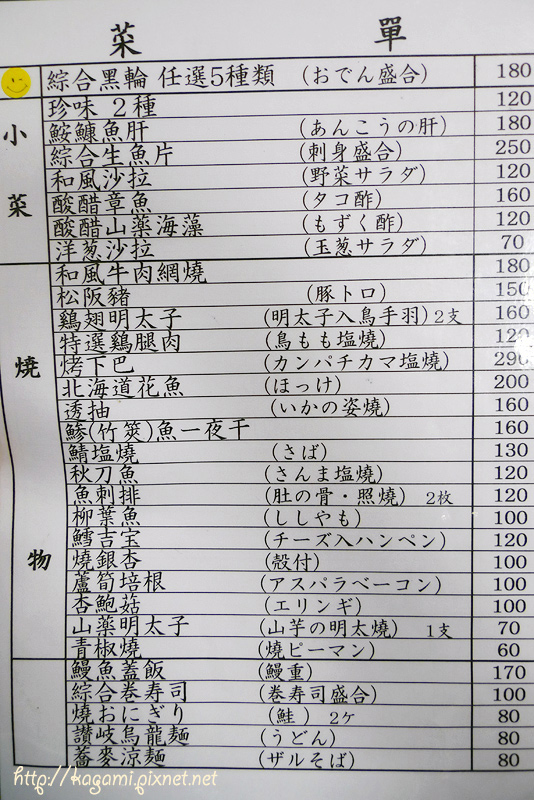 菜單
綜合黑輪 任選5種類 (おでん盛合) 180
小菜
珍味 2種 120
鮟鱇魚肝 (あんこうの肝) 180
綜合生魚片 (刺身盛合) 250
和風沙拉 (野菜サラダ) 120
酸醋章魚 (タコ酢) 160
酸醋山藥海藻 (もずく酢) 120
洋葱沙拉 (玉葱サラダ) 70
燒物
和風牛肉網燒 180
松阪豬 (豚トロ) 150
鷄翅明太子 (明太子入鳥手羽) 2支 160
特選鷄腿肉 (鳥もも塩燒) 120
烤下巴 (カンパチカマ塩燒) 290
北海道花魚 (ほっけ) 200
透抽 (いかの姿燒) 160
鰺(竹筴)魚一夜干 160
鯖塩燒 (さば) 130
秋刀魚 (さんま塩燒) 120
魚刺排 (肚の骨・照燒) 2枚 120
柳葉魚 (ししやも) 100
鱈吉宝 (チーズ入ハンペン) 120
燒銀杏 (殻付) 100
蘆筍培根 (アスパラベーコン) 100
杏鮑菇 (エリンギ) 100
山藥明太子 (山芋の明太燒) 1支 70
青椒燒 (燒ピーマン) 60
鰻魚蓋飯 (鰻重) 170
綜合卷寿司 (卷寿司盛合) 100
燒おにぎり (鮭) 2ケ 80
讚岐烏龍麵 (うどん) 80
蕎麥涼麵 (ザルそば) 80
http://kagami.pixnet.net